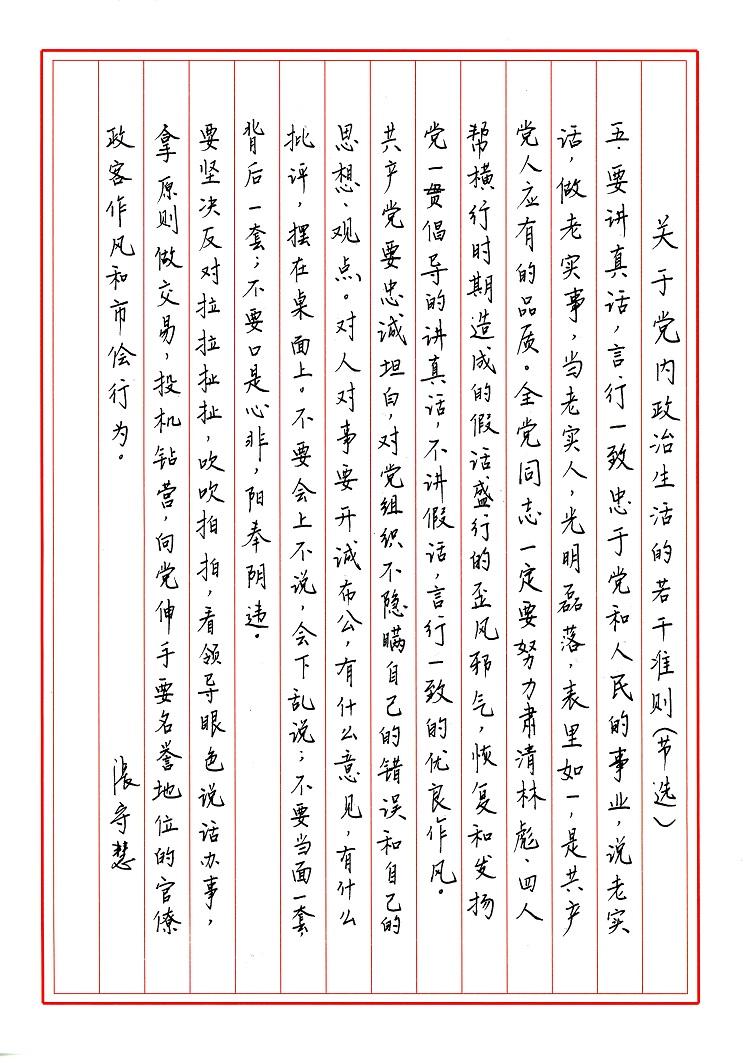 关于党内政治生活的若干准则(节选)
五.要讲真话,言行一致忠于党和人民的事业,说老实
话,做老实事,当老实人,光明磊落,表里如一,是共产
党人应有的品质。全党同志一定要努力肃清林彪、四人
帮横行时期造成的假话盛行的歪风邪气,恢复和发扬
党一贯倡导的讲真话,不讲假话,言行一致的优良作风。
共产党要忠诚坦白,对党组织不隐瞒自己的错误和自己的
思想、观点。对人对事要开诚布公,有什么意见,有什么
批评,摆在桌面上。不要会上不说,会下乱说;不要当面一套,
背后一套;不要口是心非,阳奉阴违。
要坚决反对拉拉扯扯,吹吹拍拍,看领导眼色说话办事,
拿原则做交易,投机钻营,向党伸手要名誉地位的官僚
政客作风和市侩行为。
张守慧